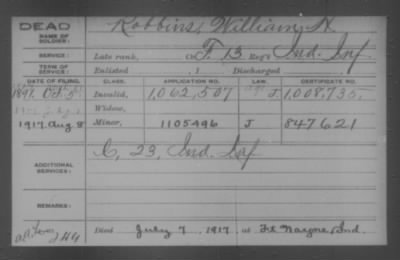 DEAD
NAME OF SOLDIER: Robbins, William H
SERVICE: Late rank, Co. F, 13 Reg't Ind. Inf
TERM OF SERVICE: Enlisted , 1 Discharged
DATE OF FILING. CLASS. APPLICATION NO. LAW. CERTIFICATE NO.
1891. Oct. Invalid, 1,062,507 J. 1,008,735.
Widow,
1917. Aug 8 Minor, 1105496 J 847621
ADDITIONAL SERVICES: C, 23, Ind. Inf
REMARKS:
Died July 7, 1917, at Ft Wayne, Ind.